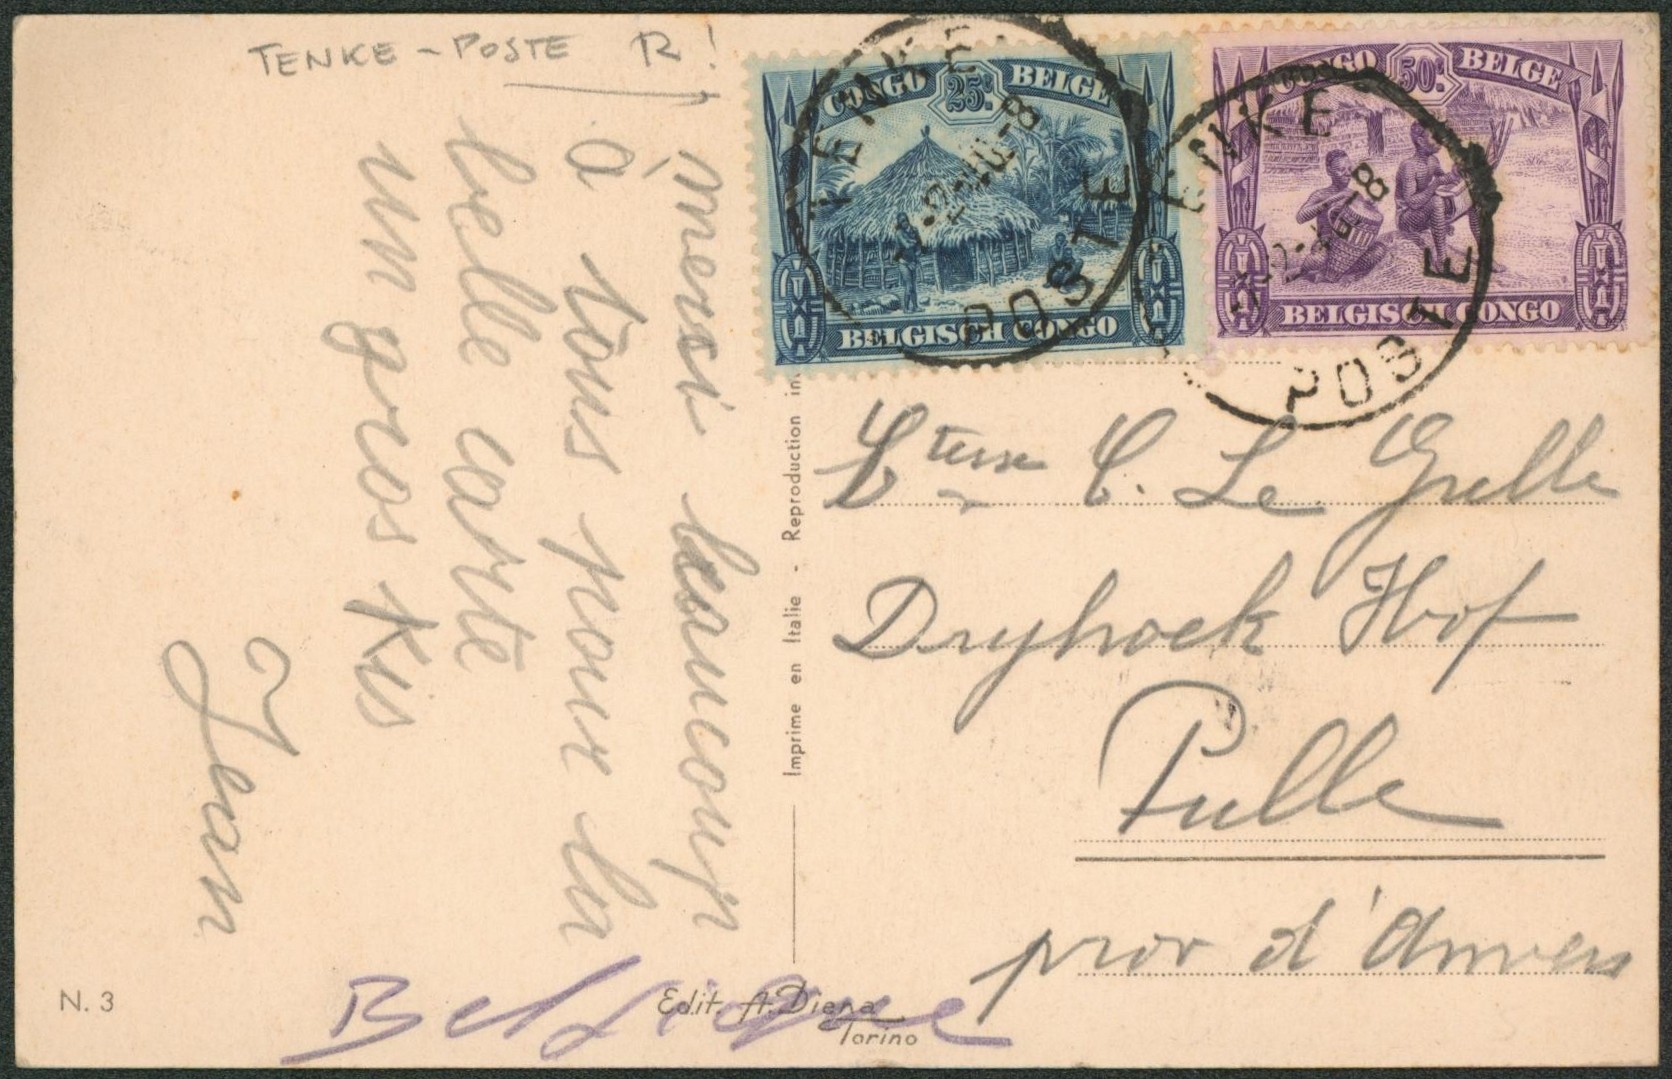 TENKE - POSTE R !
merci beaucoup
à tous pour la
belle carte
un gros Kis
Jean
CONGO 25c. BELGE
BELGISCH CONGO
CONGO 50c. BELGE
BELGISCH CONGO
TENKE
POSTE
ENKE
POSTE
Imprime en Italie - Reproduction in
Ctesse C. Le Grelle
Dryhoek Hof
Pulle
prov d'Anvers
Belgique
N. 3
Edit. A. Diena
Torino